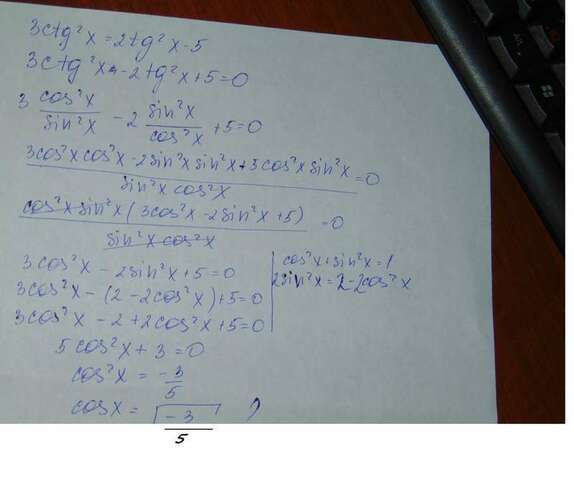 3ctg²x=2tg²x-5
3ctg²x-2tg²x+5=0
3 cos²x/sin²x - 2 sin²x/cos²x +5=0
(3cos²x cos²x - 2sin²x sin²x + 5cos²x sin²x)/(sin²x cos²x) =0
(cos²x sin²x (3cos²x - 2sin²x + 5))/(sin²x cos²x) =0
3cos²x - 2sin²x + 5 = 0 | cos²x + sin²x = 1
3cos²x - (2 - 2cos²x) + 5 = 0 | 2sin²x = 2 - 2cos²x
3cos²x - 2 + 2cos²x + 5 = 0
5cos²x + 3 = 0
cos²x = -3/5
cosx = √(-3/5) ?